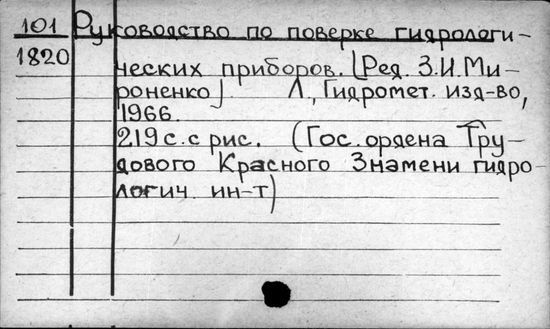 101 Руководство по поверке гидрологи-
1820 ческих приборов. [Ред. З.И.Ми-
роненко] Л., Гидромет. изд-во,
1966.
219 с. с рис. (Гос. ордена Тру-
дового Красного Знамени гидро
логич. ин-т)